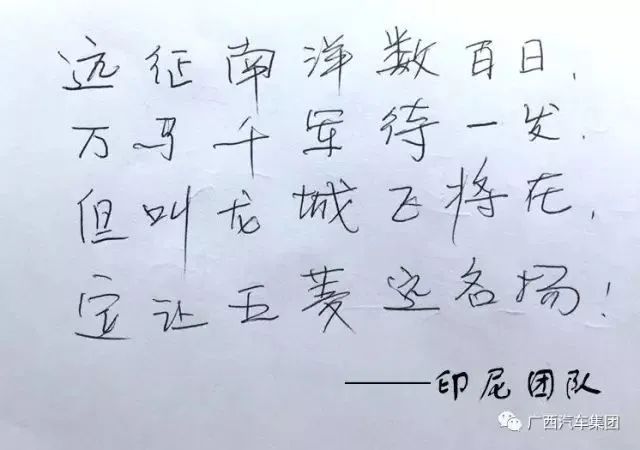 远征南洋数百日，
万马千军待一发．
但叫龙城飞将在，
定让五菱远名扬！
——印尼团队
广西汽车集团